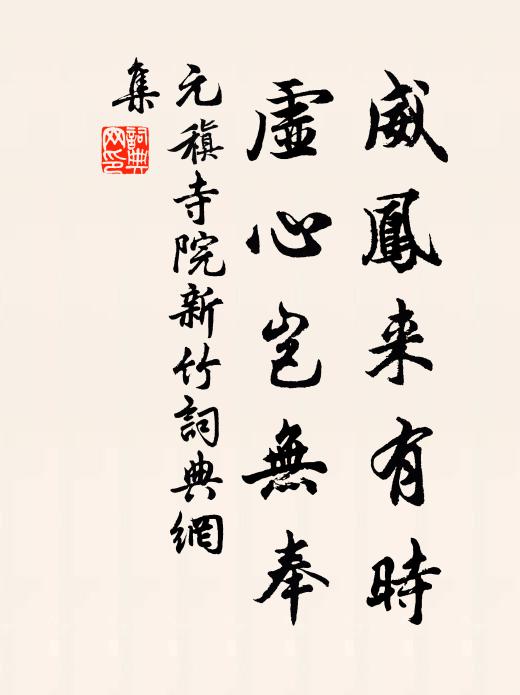 威鳳来有時
虛心岂無奉
元稹寺院新竹詞典網
集
詞典
网印